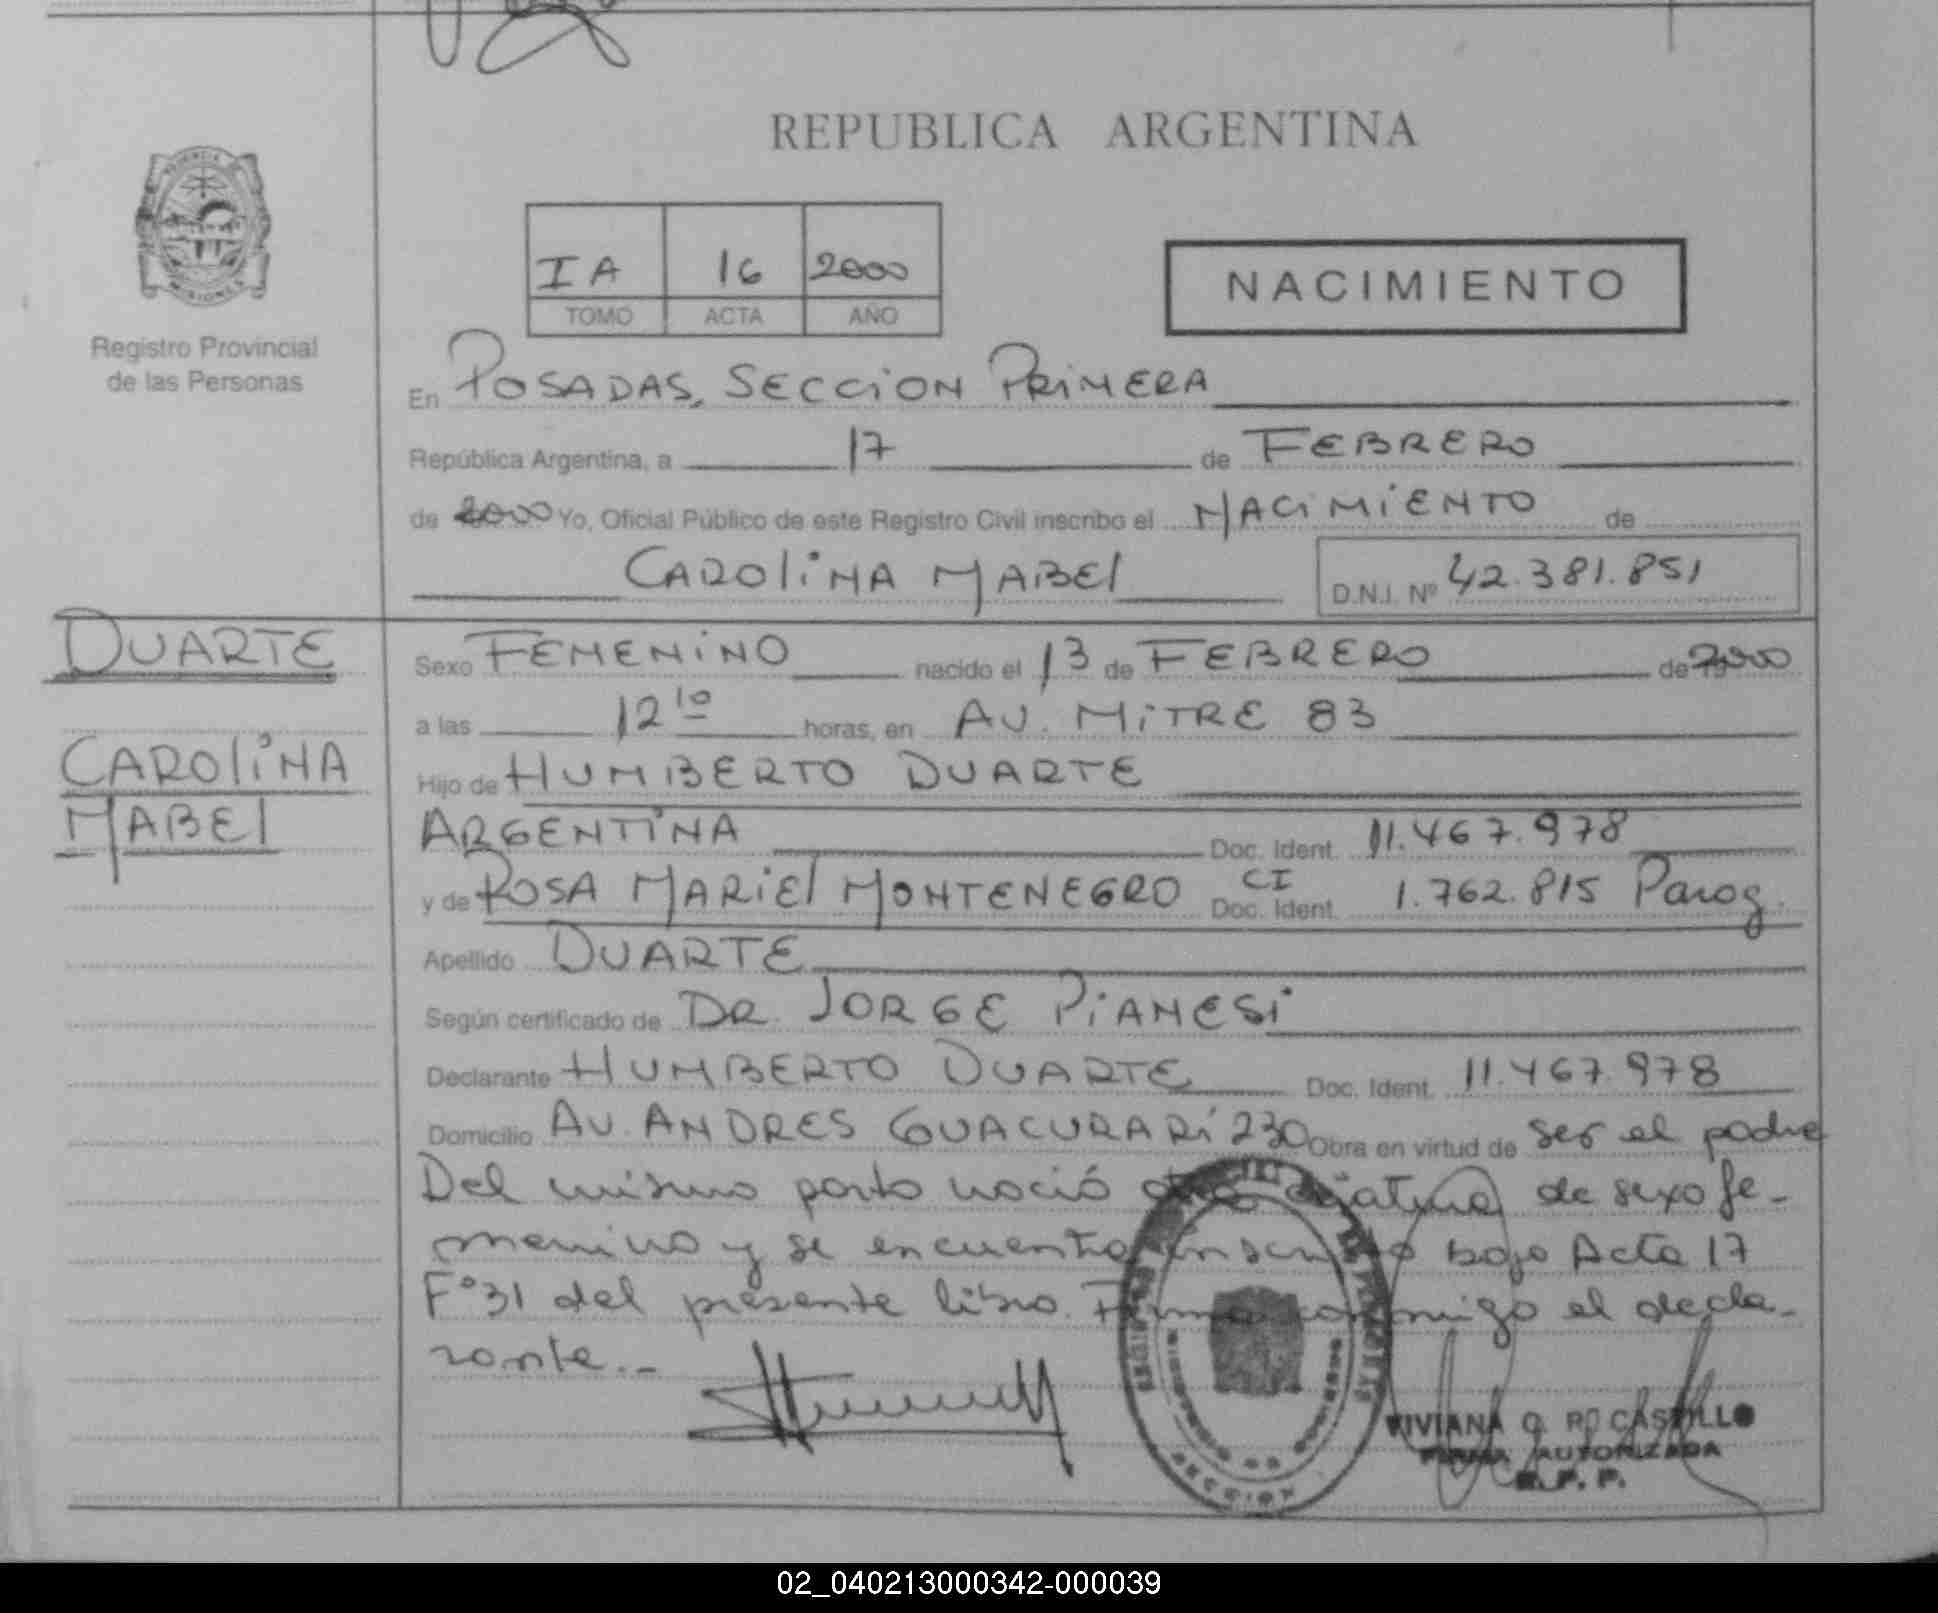 REPUBLICA ARGENTINA
PROVINCIA
MISIONES
Registro Provincial
de las Personas
IA 16 2000
TOMO ACTA AÑO
NACIMIENTO
En POSADAS, SECCION PRIMERA
República Argentina, a 17 de FEBRERO
de 2000 Yo, Oficial Público de este Registro Civil inscribo el NACIMIENTO de
CAROLINA MABEL D.N.I. Nº 42.381.851
DUARTE
CAROLINA
MABEL
Sexo FEMENINO nacido el 13 de FEBRERO de 2000
a las 12 10 horas, en AV. MITRE 83
Hijo de HUMBERTO DUARTE
ARGENTINA Doc. Ident. 11.467.978
y de ROSA MARIEL MONTENEGRO CI Doc. Ident. 1.762.815 Parag.
Apellido DUARTE
Según certificado de DR. JORGE PIANESI
Declarante HUMBERTO DUARTE Doc. Ident. 11.467.978
Domicilio AV. ANDRES GUACURARÍ 230 Obra en virtud de ser el padre
Del mismo parto nació otra criatura de sexo fe-
menino y se encuentra inscripto bajo Acta 17
Fº31 del presente libro. Firma conmigo el decla-
rante.-
VIVIANA CASTILLO
FIRMA AUTORIZADA
R.P.P.
02_040213000342-000039